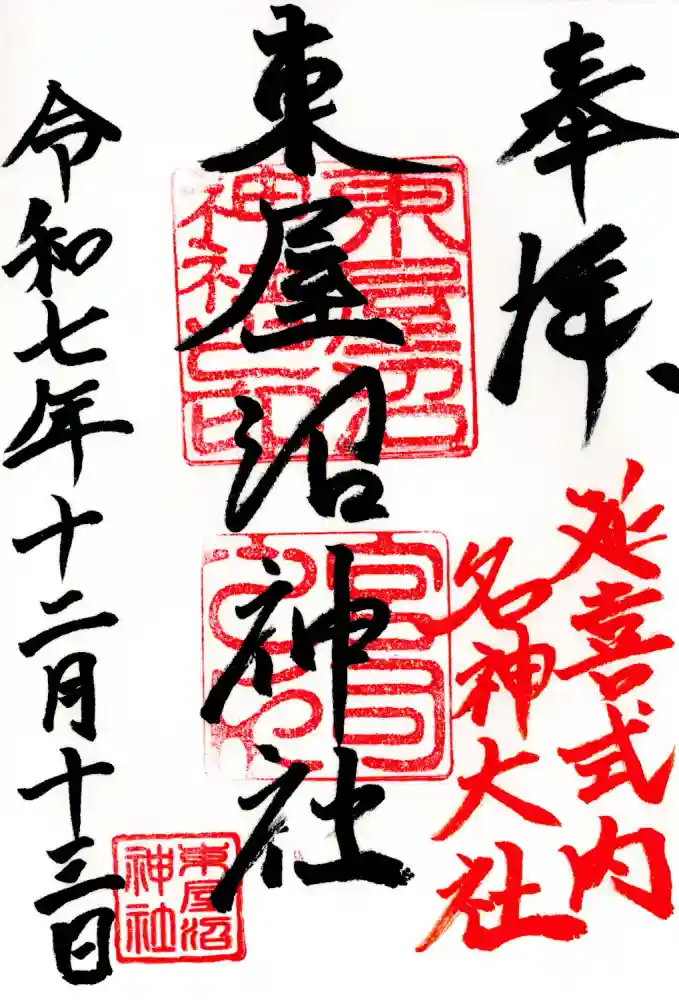 奉拝、
延喜式内
名神大社
東屋沼神社
東屋沼
神社之印
宮司
東屋沼
神社
令和七年十二月十三日